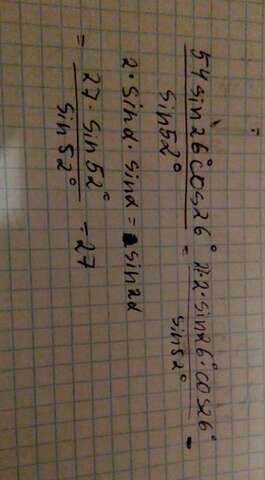 54sin26°cos26° / sin52° = 27·2·sin26°·cos26° / sin52° =
2·sinα·sinα = sin2α
= 27·sin52° / sin52° = 27